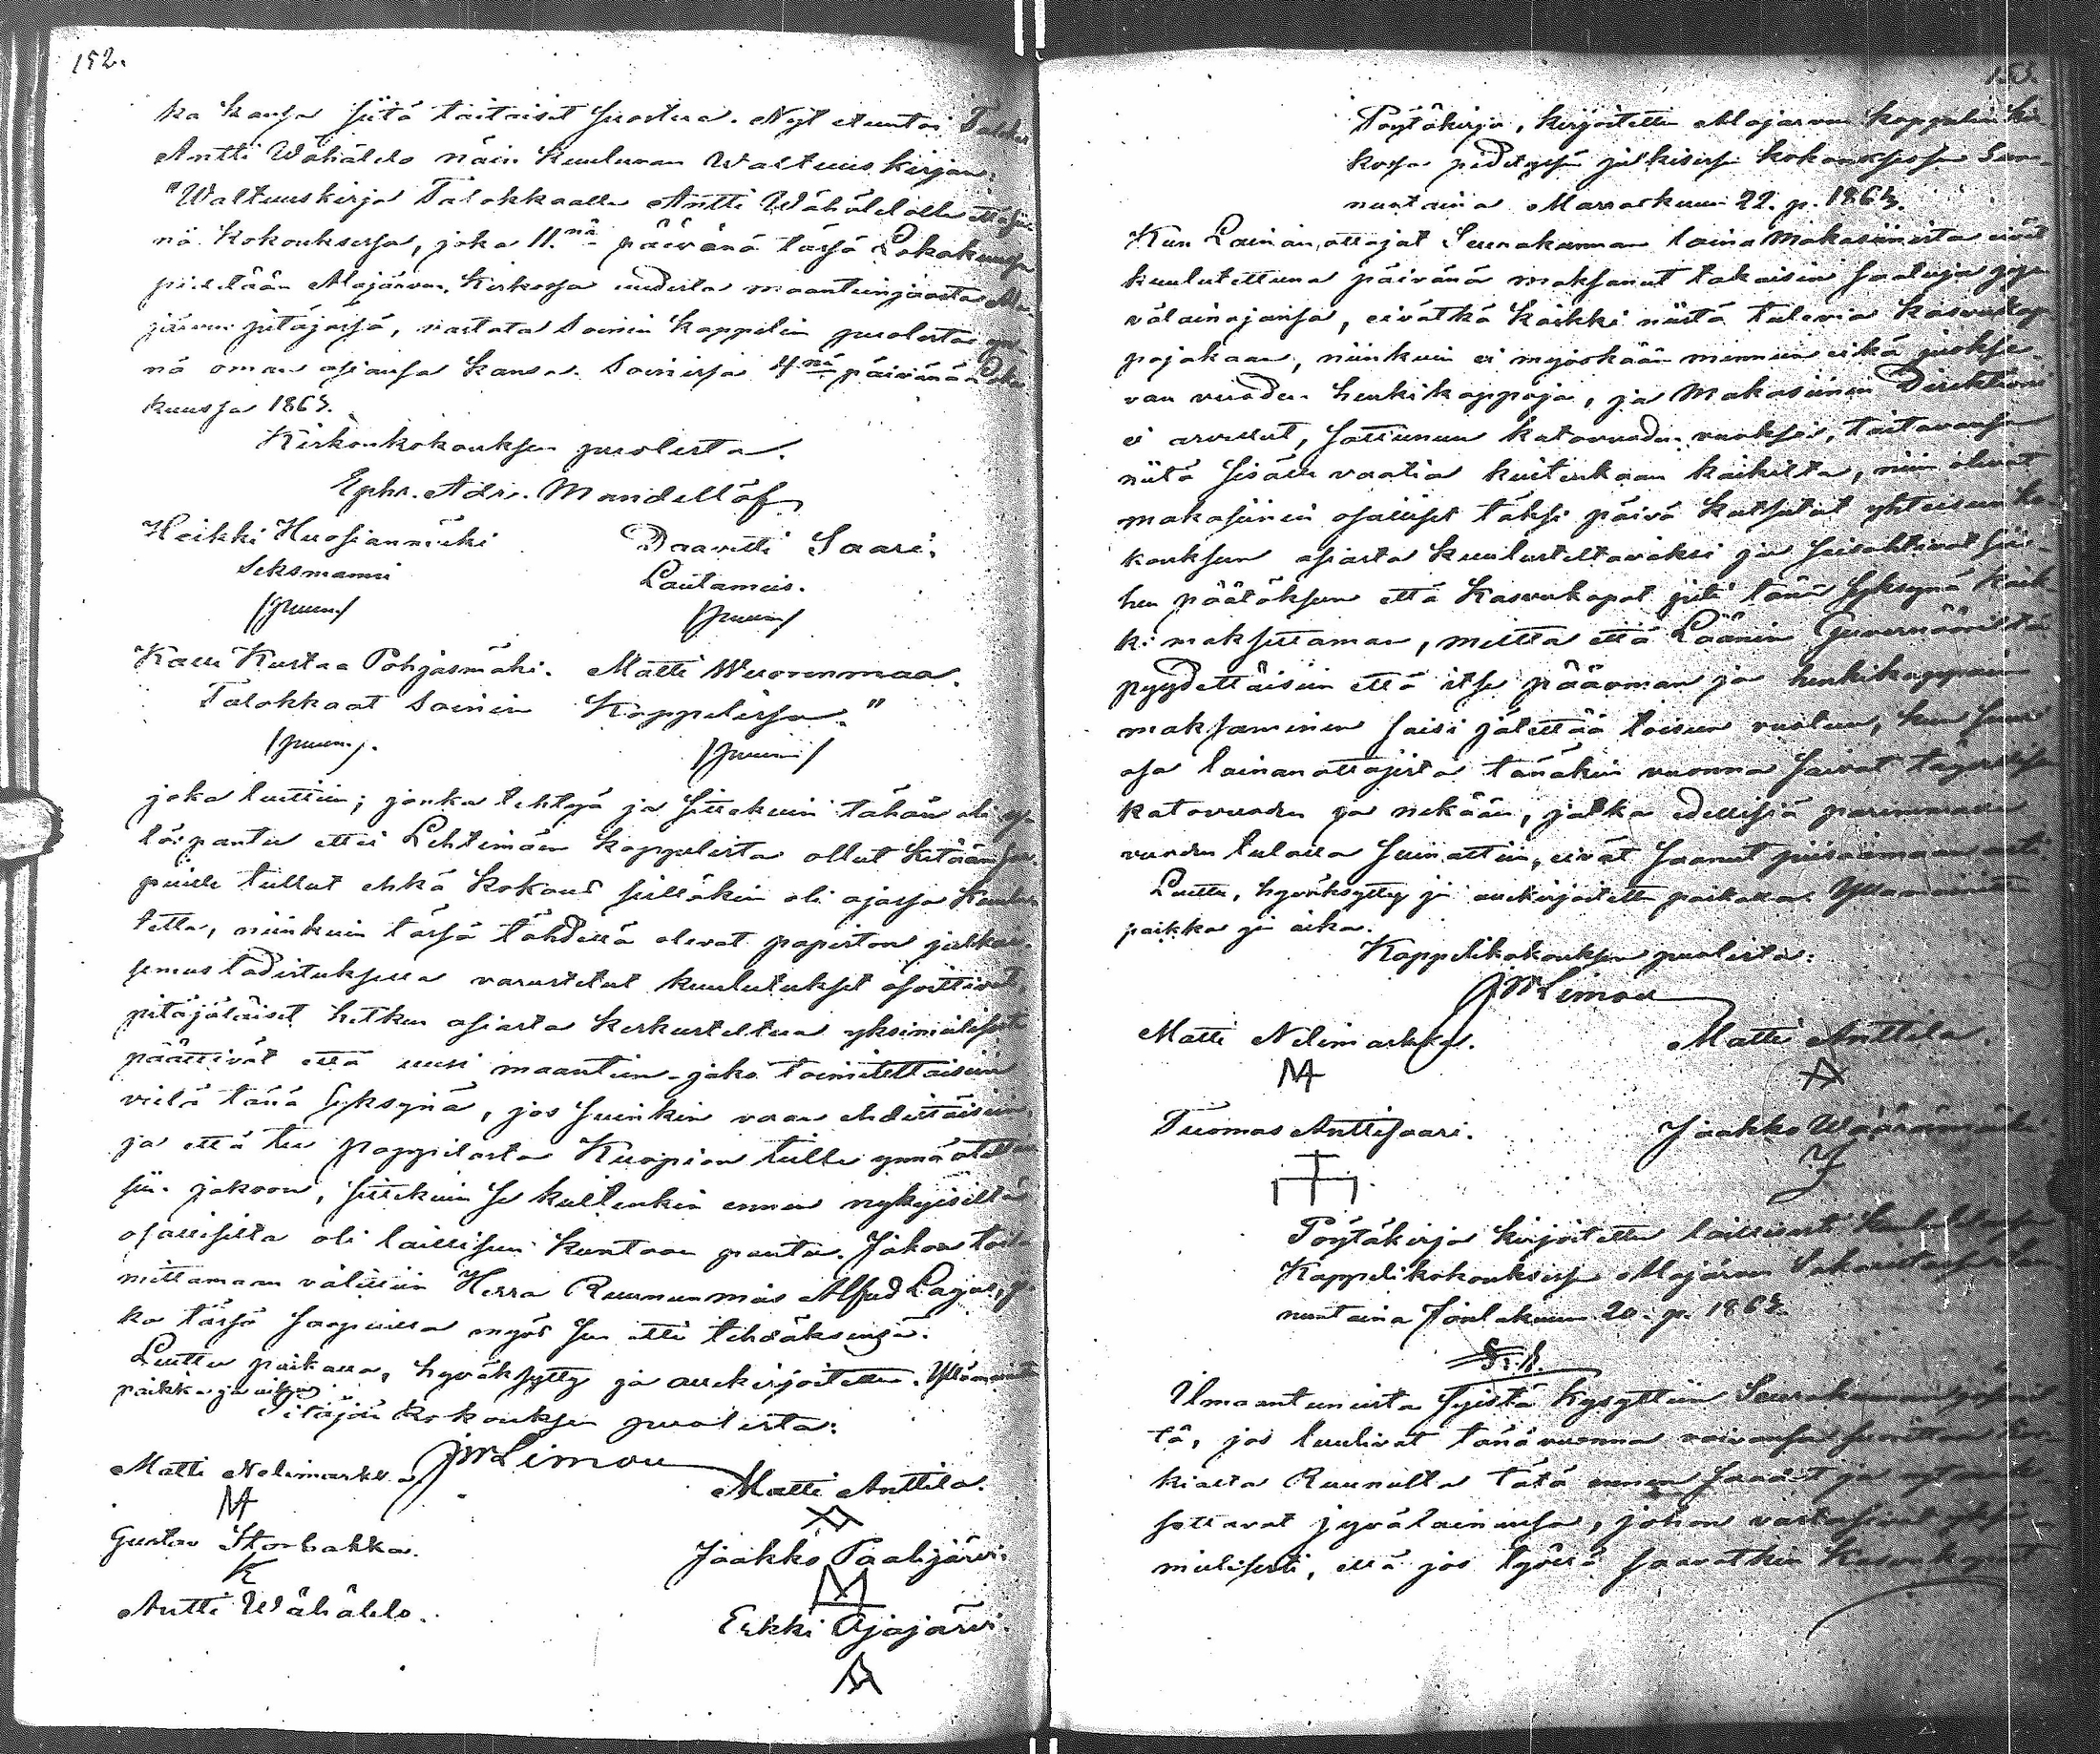 152.
ka kansa siitä taitaisit suostua. Nyt etuntoi
Antti Wähälclo näin kuuluvan Waltuus kirjan:
"Waltuuskirja Talokkaalle Antti Wähälclolle
nä kokouksessa, joka 11.nä päivänä tässä Lokakuussa
pidetään Alajärven Kirkossa uudesta maanteinjaosta Ala-
järven pitäjässä, vastata Soinin Kappelin puolesta
nä oman asiansa kanssa. Soinissa 4.nä päivänä Loka
kuussa 1863.
Kirkonkokouksen puolesta.
Ephr. Adr. Mandellöf
Heikki Huosianmäki
Daavitti Saari.
Seksmanni
Lautamies.
/puum/
/puum/
Kalle Kustaa Pohjasmäki. Matti Wuorenmaa.
Talokkaat Soinin Kappelissa."
/puum/.
/puum/
joka luettiin; jonka tehtyä ja sittekuin tähän oli
lä: pantu ettei Lehtimäen kappelista ollut ketään saa-
puille tullut ehkä kokous silläkin oli ajassa kuulu
tettu, niinkuin tässä tähdellä olevat papiston julkai-
semus todistuksella varustetut kuulutukset osottivat,
pitäjäläiset hetken asiasta keskusteltua yksimielisesti
päättivät että uusi maantien-jako toimitettaisiin
vielä tänä syksynä, jos suinkin vaan ehdittäisiin,
ja että tie pappilasta Kuopion tielle ynnä otettai
siin jakoon, sittekuin se kuitenkin ennen nykyisiltä
osallisilta oli lailliseen kuntoon pantu. Jakoa toi
mittamaan välittiin Herra Ruununmies Alfred Lagus, jo-
ka tässä saapuilla myös sen otti tehdäksensä.
Luettu paikalla, hyväksytty ja allekirjoitettu. Yllämainittu
paikka ja aika.
Pitäjän kokouksen puolesta:
JW Limon
Matti Nelimarkka
Matti Anttila.
Gustav Storbakka.
Jaakko Paalijärvi.
Antti Wähälclo.
Erkki Ojajärvi.
153.
Pöytäkirja, kirjoitettu Alajärven kappelin kir-
kossa pidetyssä julkisessa kokouksessa Sun-
nuntaina Marraskuun 22. p. 1863.
Kun Lainan ottajat Seurakunnan laina Makasiinista eivät
kuulutettuna päivänä maksanut takaisin saatuja jyvä
välainojansa, eivätkä kaikki niistä tulevia kasvukap
pojakaan, niinkuin ei myöskään mennein eikä juokse-
van vuoden henkikappoja, ja Makasiinin Direktioni
ei arvellut, sattuneen katovuoden vuoksi, taitavansa
niitä sisään vaatia kuitenkaan kaikilta, niin olivat
makasiinin osalliset täksi päivä kutsutut yhteiseen ko-
kouksen asiasta kuulusteltavaksi ja seisahtivat sii-
hen päätöksen että kasvukapat piti tänä syksynä kaik-
ki maksettaman, mutta että Läänin Guvernööriltä
pyydettäisiin että itse pääoman ja henkikappain
maksaminen saisi jätettää toiseen vuoteen, kun suuri
osa lainanottajista tänäkin vuonna saivat täydellisen
katovuoden ja nekään, jotka edellisiä paremmasta
vuoden tulolla siunattiin, eivät saanut piisaamaan asti.
Luettu, hyväksytty ja allekirjoitettu paikalla. Yllamainittu
paikka ja aika.
Kappelikokouksen puolesta:
JW Limon
Matti Nelimarkka.
Matti Anttila.
Tuomas Anttisaari.
Jaakko Wääränmäki.
Pöytäkirja kirjoitettu laillisesti kuulutetussa
Kappelikokouksessa Alajärven Sakaristossa Sun
nuntaina Joulukuun 20. p. 1863.
§. 1.
Ilmaantuneista syistä kysyttiin Seurakunnan jäsenil-
tä, jos luulivat tänä vuonna voivansa suorittaa
kialta Ruunulta tätä ennen saadut ja
settavat jyvälainansa, johon vastasivat yksi
mielisesti, että jos työllä saavatkin kasvukapat